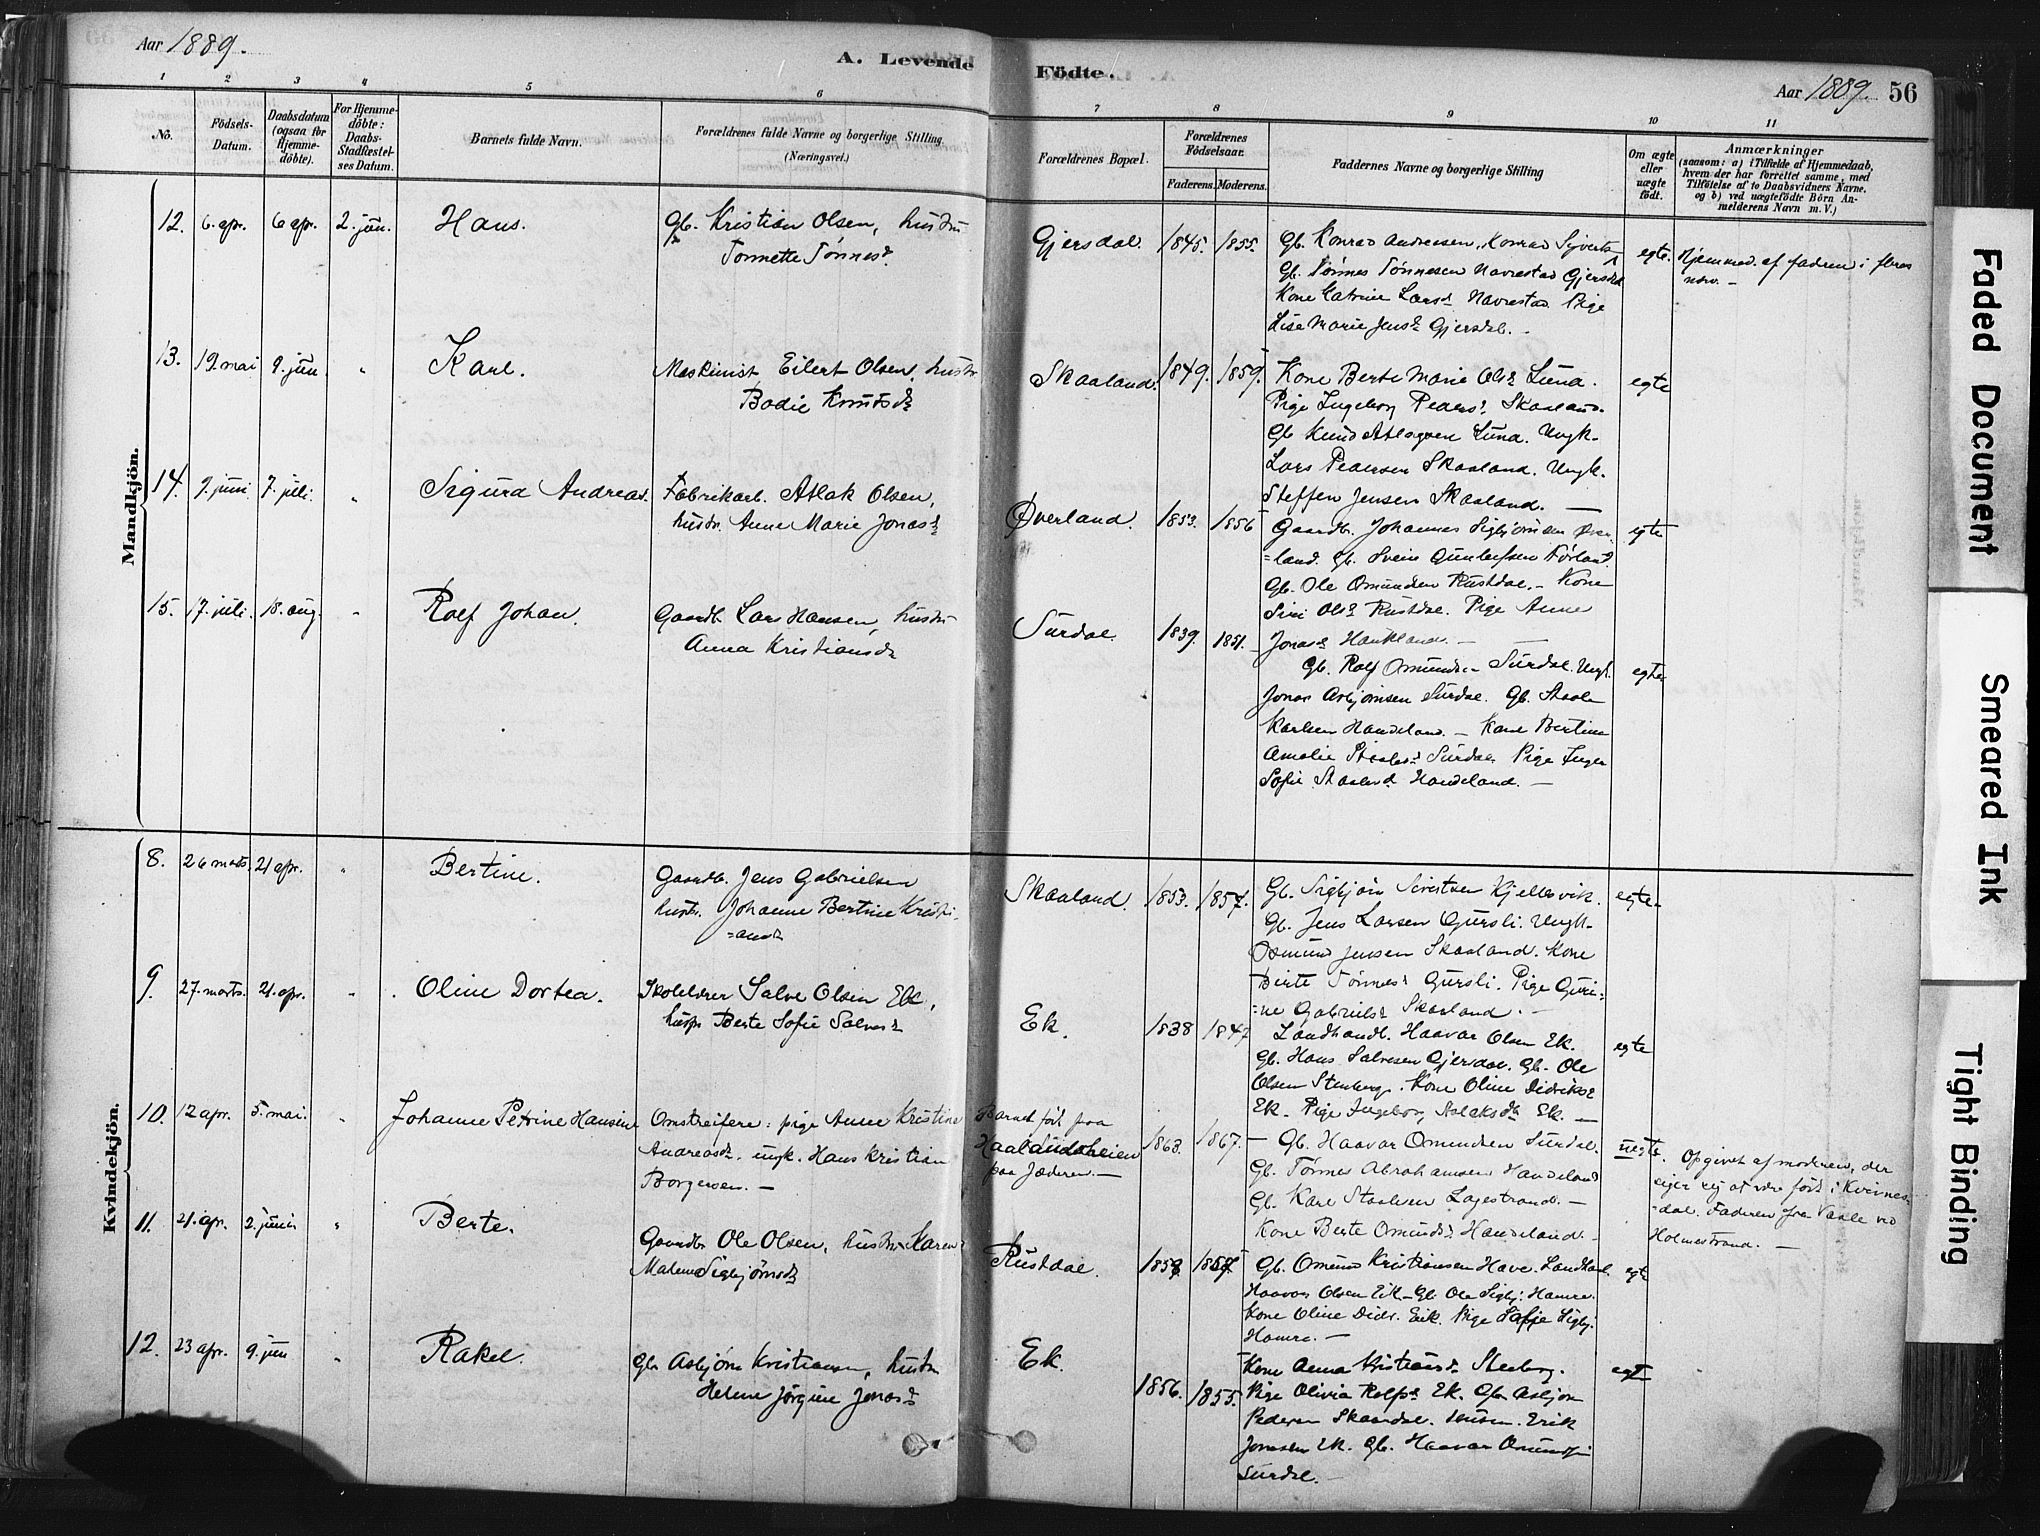 Aar 1889.
A. Levende Födte.
Aar 1889. 56
1 2 3 4 5 6 7 8 9 10 11
No.
Födsels-Datum.
Daabsdatum (ogsaa for Hjemme-döbte).
For Hjemme-döbte: Daabs-Stadfæstel-ses Datum.
Barnets fulde Navn.
Forældrenes fulde Navne og borgerlige Stilling.
(Næringsvei.)
Forældrenes Bopæl.
Forældrenes Födselsaar.
Faderens. Moderens.
Faddernes Navne og borgerlige Stilling
Om ægte eller uægte födt.
Anmærkninger
(saasom: a) i Tilfælde af Hjemmedaab, hvem der har forrettet samme, med Tilföielse af to Daabsvidners Navne. og b) ved uægtefödte Börn An-melderens Navn m. V.)
Mandkjön.
12. 6. apr. 6 apr. 2. jun. Hans. Gb. Kristian Olsen, hustru
Tonnette Tønnesd.
Gjersdal. 1845. 1855. Gb. Konrad Andreasen, Konrad Sivertsen
Gb. Tønnes Tønnesen Navrestad Gjersdal
Kone Catrine Larsd. Navrestad. Pige
Lise Marie Jensd. Gjersdal.
egte. Hjemmed. af faderen i fleres
nærv. —
13. 19. mai 9. jun " Karl. Maskinist Eilert Olsen, hustr
Bodil Knutsd.
Skaaland. 1849. 1859. Kone Berte Marie Olsd. Lund.
Pige Ingeborg Pedersd. Skaaland.
Gb Knud Atlagsen Lund. Ungk.
Lars Pedersen Skaaland. Ungk.
Steffen Jensen Skaaland. —
egte
14. 9. juni 7. juli. " Sigurd Andreas. Fabrikarb. Aslak Olsen,
hustr. Anne Marie Jonasd.
Øverland. 1853. 1856 Gaardb. Johannes Sigbjørnsen Øver-
=land. Gb. Svein Gunleifsen Førland.
Gb. Ole Omundsen Rustdal. - Kone
Siri Olsd. Rustdal. Pige Anne
Jonasd. Haukland. —
egte
15. 17. juli. 18. aug. " Rolf Johan. Gaardb. Lars Hansen, hustru
Anna Kristiansd.
Surdal. 1839. 1851. Gb. Rolf Omunds. - Surdal. Ungk.
Jonas Asbjørnsen Surdal. Gb. Staale
Karlsen Handeland. — Kone Bertine
Amalie Staalesd. Surdal. Pige Inger
Sofie Staalesd. Handeland. —
egte
Kvindekjön.
8. 26 marts. 21 apr. " Bertine. Gaardb. Jens Gabrielsen
hustr. Johanne Bertine Kristi-
=ansd.
Skaaland. 1853. 1857. Gb. Sigbjørn Sivertsen Kjellesvik.
Gb. Jens Larsen Gursli. Ungk.
Osmund Jensen Skaaland. Kone
Birte Tønnesd. Gursli. Pige Guri-
=ne Gabrielsd. Skaaland. —
egte.
9. 27. marts. 21. apr. " Oline Dortea. Skolelærer Salve Olsen Ek,
hustr Berte Sofie Salvesd.
Ek. 1838 1847 Landhandl. Haavar Olsen Ek.
Gb. Hans Salvesen Gjersdal. Gb. Ole
Olsen Stenberg. Kone Oline Didriksd.
Ek. Pige Ingeborg Aslaksd. Ek. —
egte
10. 12 apr. 5. mai. " Johanne Petrine Hansine Omstreifere: pige Anne Kristine
Andreasd. ungk. Hans Kristian
Borgersen. —
Barnet født paa
Haalandsheien
paa Jæderen. —
1863. 1867. — Gb. Haavar Omundsen Surdal.
Gb. Tønnes Abrahamsen Handeland
Gb. Karl Staalesen Lagestrand. —
Kone Berte Omundsd. Handeland. —
uegte. Opgivet af moderen, der
siger sig at være født i Kvines-
=dal. Faderen fra Vaale ved
Holmestrand. —
11. 21. apr. 2. juni " Berte. Gaardb Ole Olsen, hustru Karen
Malene Sigbjørnsd.
Rustdal. 1859 1857 Gb. Omund Kristiansen Have. Landhandl.
Haavar Olsen Eik - Gb. Ole Sigbj: Hamre.
Kone Oline Didr. Eik. Pige Sofie Sigbj.
Hamre. —
egte
12. 23 apr. 9. jun " Rakel. Gb Asbjørn Kristiansen, hustru
Helene Jørgine Jonasd.
Ek. 1856. 1855. Kone Anna Kristiansd. Stenberg.
Pige Olivia Rolfsd. Ek. Gb. Asbjørn
Pedersen Skaardal. Erik
Jonassen Ek. Gb. Haavar Omundsen
Surdal. —
egte
Faded Document
Smeared Ink
Tight Binding